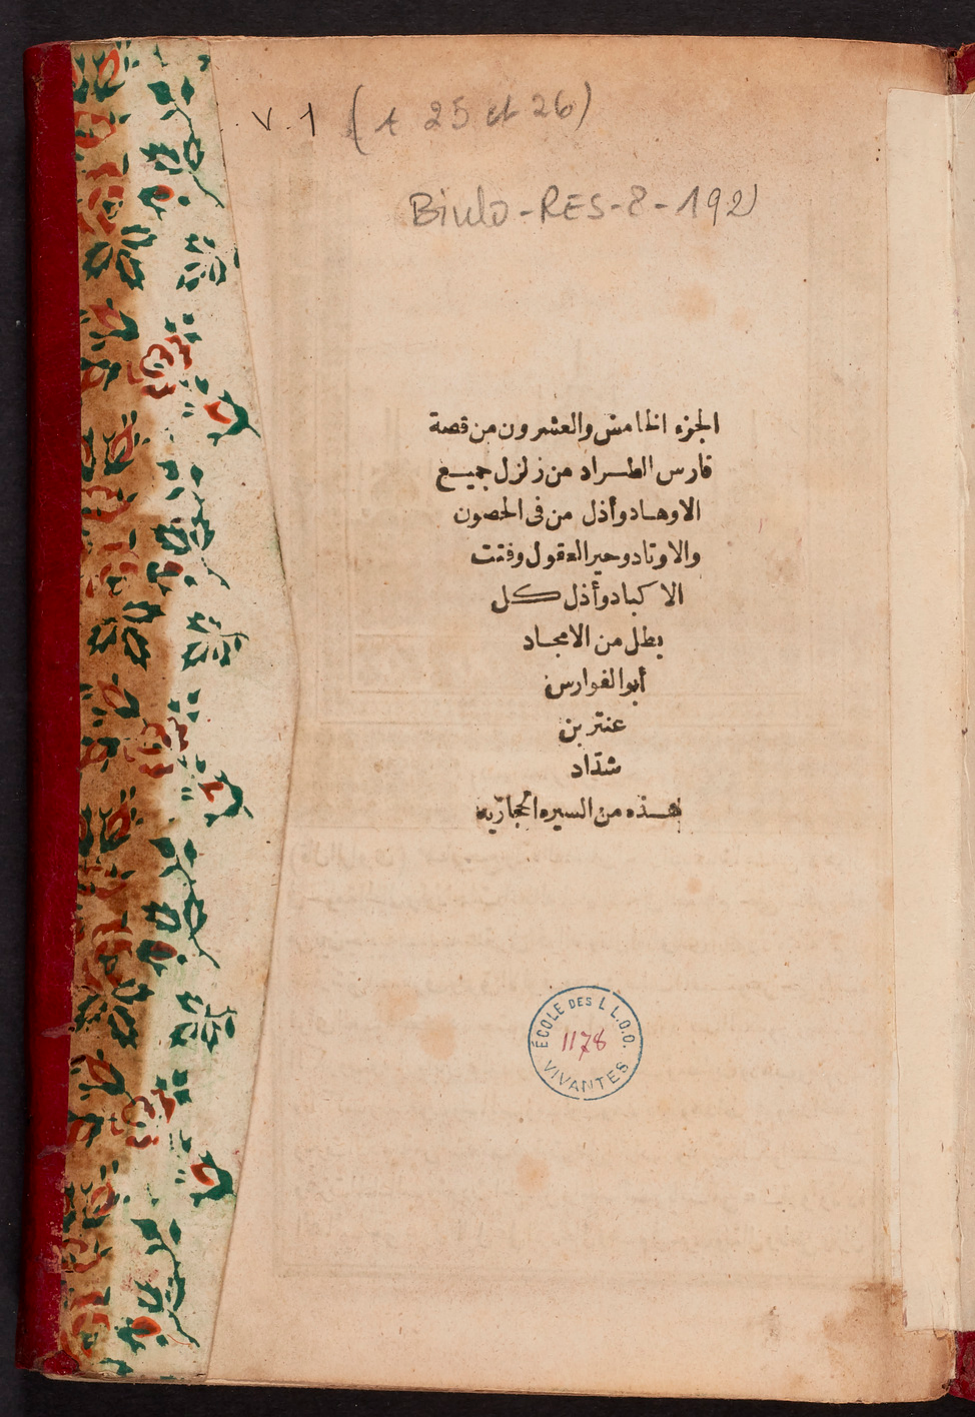 v.1 (t 25 et 26)
Biulo-RES-8-192
الجزء الخامس والعشرون من قصة
فارس الطراد من زلزل جميع
الاوهاد وأذل من فى الحصون
والاوتاد وحير العقول وفتت
الاكباد وأذل كل
بطل من الامجاد
أبو الفوارس
عنتر بن
شدّاد
هذه من السيره الحجازيه
ÉCOLE DES L L.O.O.
1178
VIVANTES